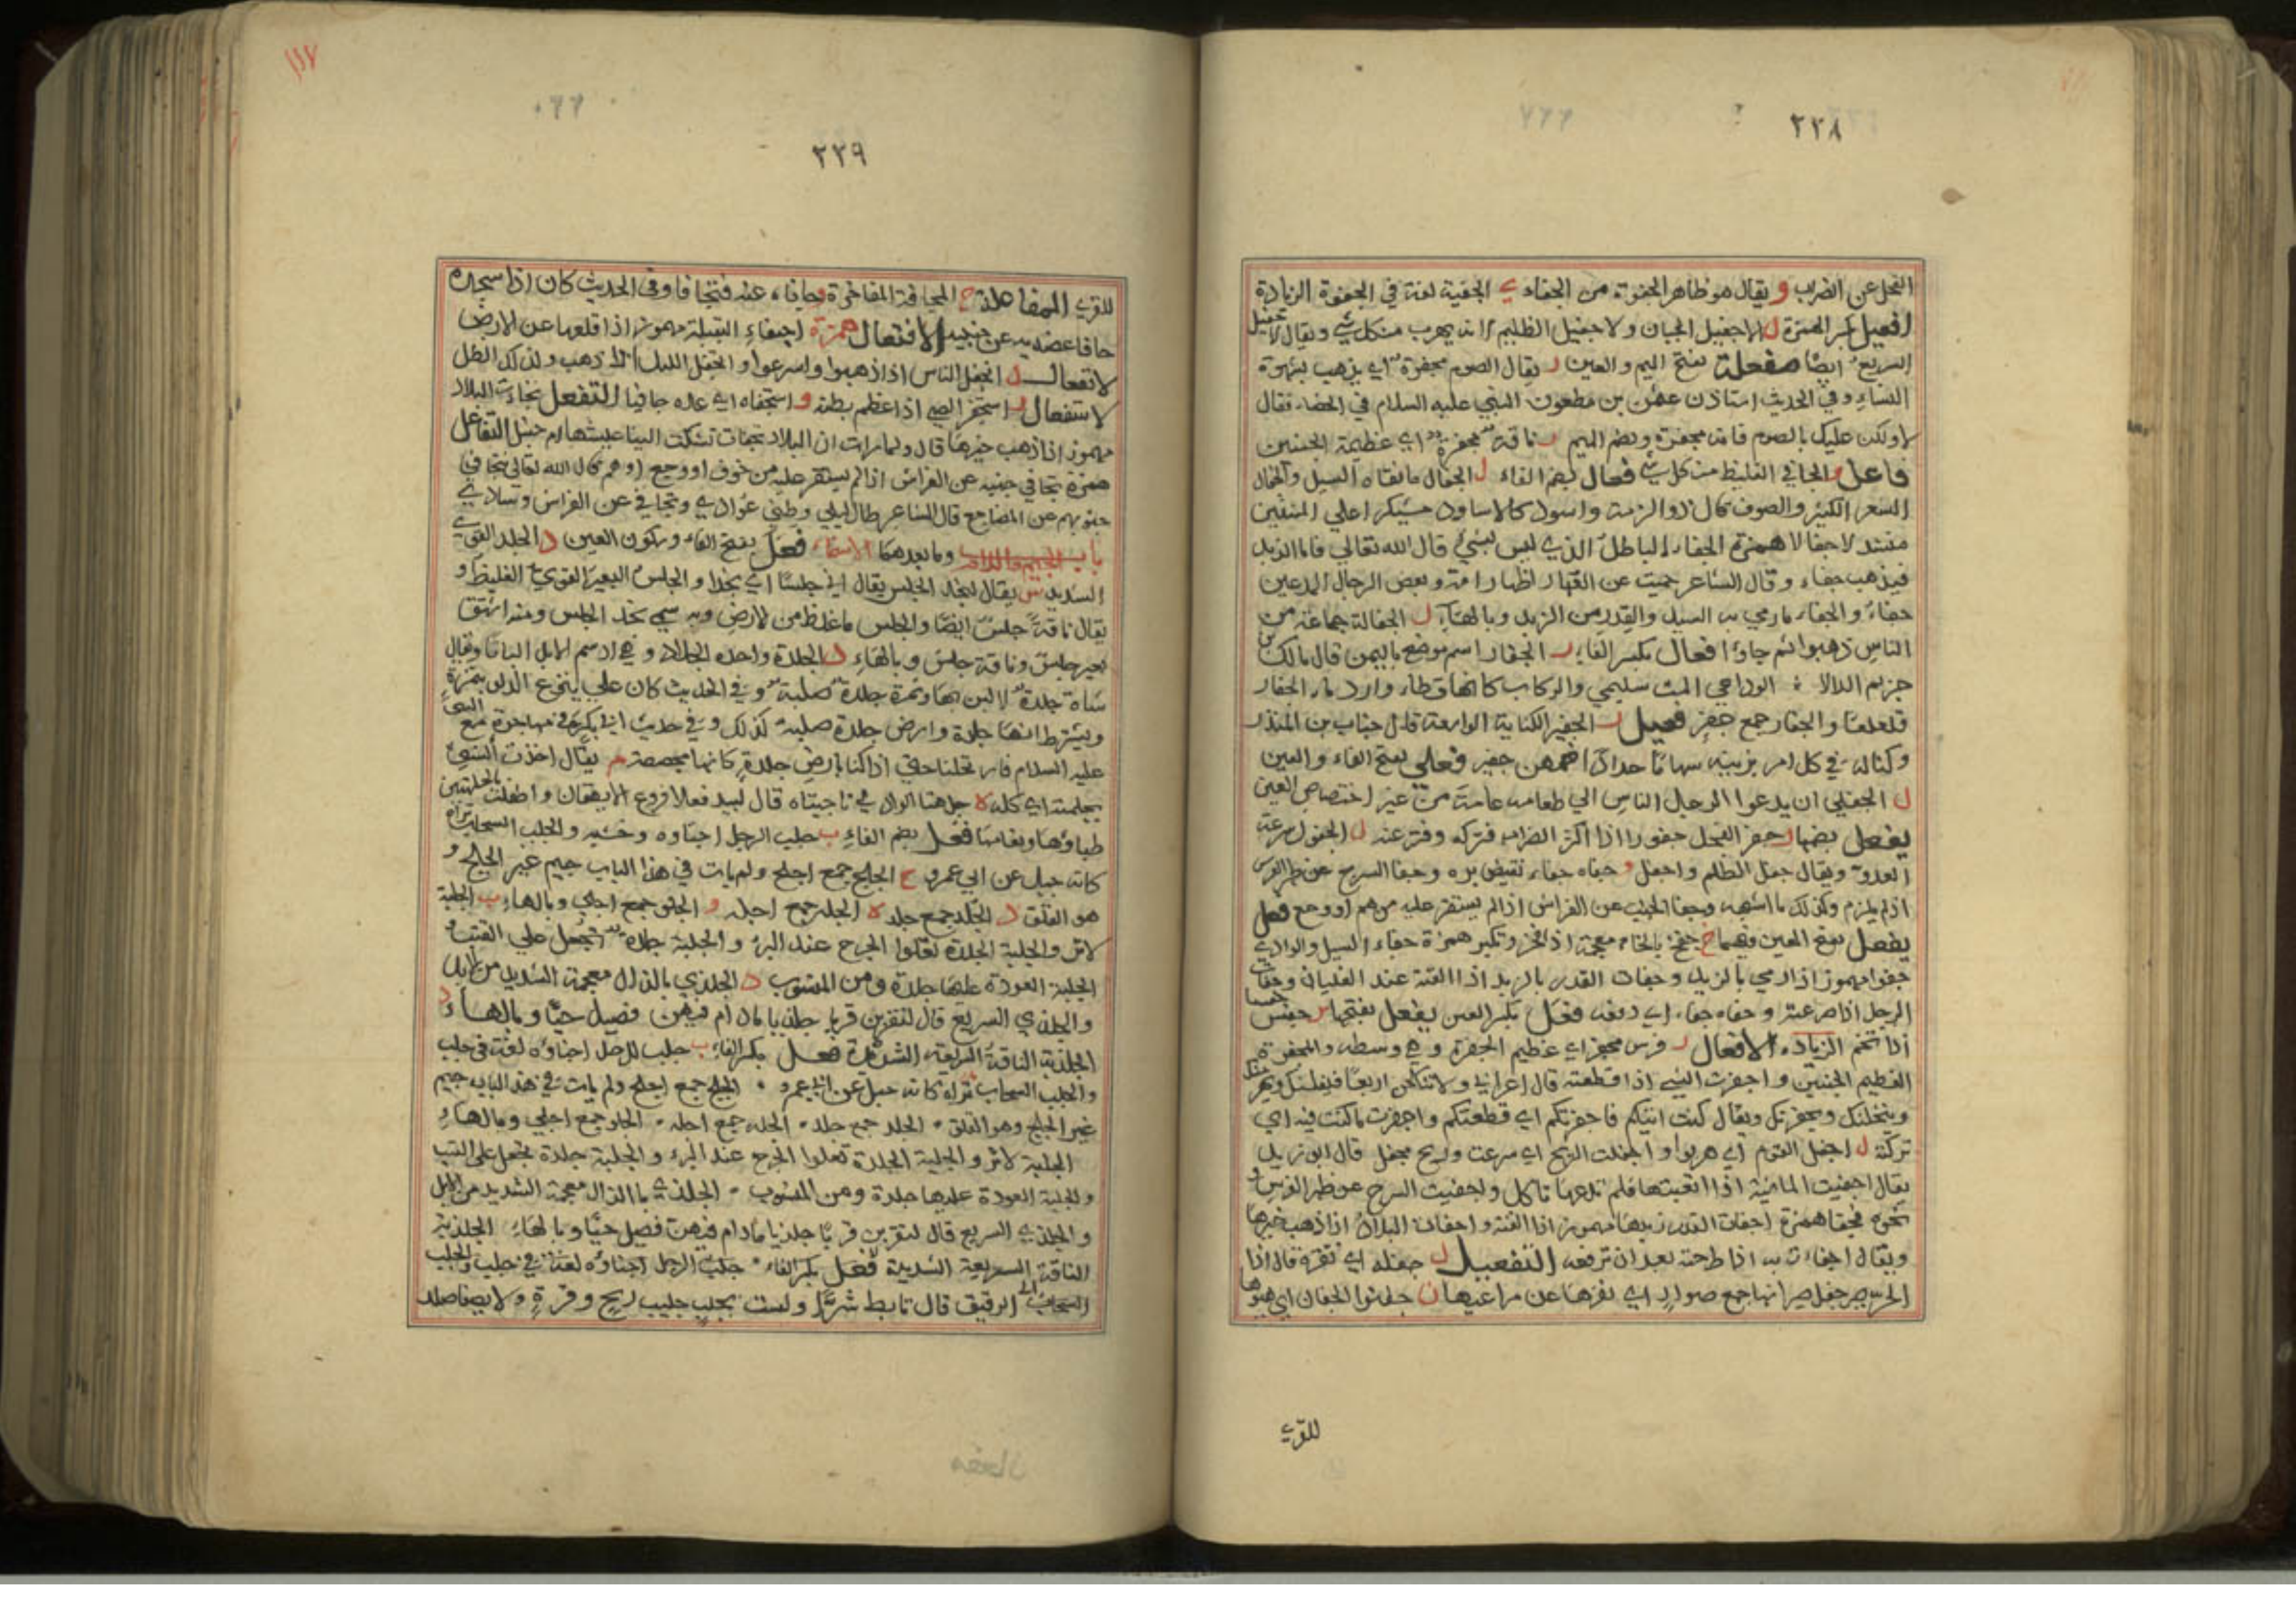 ٢٢٨
الفحل عن الضراب و يقال هو ظاهر الجفوة من الجفاء ي الجفية لغة في الجفوة الزيادة
افعيل بكسر الهمزة ل الاجفيل الجبان والاجفيل الظليم لانه يهرب من كل شي ويقال لاجفيل
السريع ايضًا مفعلة بفتح الميم والعين ر يقال الصوم مجفرة اي يذهب بشهوة
النساء وفي الحديث استاذن عثمن بن مظعون النبي عليه السلام في الخصاء فقال
لا ولكن عليك بالصوم فانه مجفرة وبضم الميم ر ناقة مجفرة اي عظيمة الجنبين
فاعل و الجافي الغليظ من كل شي فعال بضم الفاء ل الجفال ما نفاه السيل والجفال
الشعر الكثير والصوف قال ذو الرمة واسود كالاساود مسبكر اعلي المتنين
منسدلا جفالا همزة الجفاء الباطل الذي ليس بشيء قال الله تعالي فاما الزبد
فيذهب جفاء وقال الشاعر حميت عن العهار اطهار امه وبعض الرجال المدعين
جفاءُ والجفاء ما رمي به السيل والقدر من الزبد وبالهاء ل الجفالة جماعة من
الناس ذهبوا ثم جاؤا فعال بكسر الفاء ر الجفار اسم موضع باليمن قال مالك بن
حزيم الدالا الوداعي المت سليمي والركاب كانها قطا وارد ماء الجفار
قلعلعا والجفار جمع جفر فعيل ر الجفير الكنانة الواسعة قال حباب بن المنذر
وكنا له في كل امر يزينه سهامًا حدادًا ضمهن جفير فعلي بفتح الفاء والعين
ل الجفلي ان يدعوا الرجل الناس الي طعامه عامة من غير اختصاص العين
يفعل بضمها ر جفر الفحل جفورا اذا اكثر الضراب فتركه وفتر عنه ل الجفول سرعة
العدو ويقال جفل الظلم واجفل و جفاه جفاء نقيض بره وجفا السرج عن ظهر الفرس
اذا لم يلزم وكذلك ما اشبهه وجفا الجنب عن الفراش اذا لم يستقر عليه من هم او وجع فعل
يفعل بفتح العين فيهما خ جفخ بالخاء معجمة اذا فخر وتكبر همزة جفاء السيل والوادي
جفوا مهموز اذا رمي بالزبد وجفات القدر بالزبد اذا القته عند الغليان وجفات
الرجل اذا صرعته وجفاه جفاء اي دفعه فعل بكسر العين يفعل بفتحها س جفس جفسا
اذا تخم الزيادة الافعال ر فرس مجفر اي عظيم الجفرة وهي وسطه والمجفرة
العظيم الجنبين واجفرت الشي اذا قطعته قال اعرابي ولا تنكحن اربعًا فيفلسنك ويهرمنك
وينحلنك ويجفرنك ويقال كنت اتيكم فاجفرتكم اي قطعتكم واجفرت ما كنت فيه اي
تركته ل اجفل القوم اي هربوا واجفلت الريح اي سرعت وريح مجفل قال ابو زيد
يقال اجفيت الماشية اذا اتعبتها فلم تدعها تاكل واجفيت السرج عن ظهر الفرس و
نحوه فجفا همزة اجفات القدر زبدها مهموز اذا القته واجفات البلاد اذا ذهب خيرها
ويقال اجفاءت به اذا طرحته بعد ان ترفعه التفعيل ل جفله اي نفره قال اذا
الحر جفل صيرانها جمع صوار اي نفرها عن مراعيها ن جفنوا الجفان اي هيوها
للقري
١١٧
٢٢٩
للقري المفاعلة خ المجافخة المفاخرة و جافاه عنه فتجافا وفي الحديث كان اذا سجد
جافا عضديه عن جنبيه الافتعال همزة اجتفاء البقلة مهموز اذا قلعها عن الارض
لانفعال ل انجفل الناس اذا ذهبوا واسرعوا وانجفل الليل اذا ذهب وكذلك الظل
لاستفعال ر استجفر الصبي اذا عظم بطنه و استجفاه اي عده جافيا التفعل تجفات البلاد
مهموز اذا ذهب خيرها قال ولما رات ان البلاد تجفات تشكت الينا عيشها ام حنبل التفاعل
همزة تجافي جنبه عن الفراش اذا لم يستقر عليه من خوف او وجع او هم قال الله تعالي تتجافي
جنوبهم عن المضاجع قال الشاعر طال ليلي وطني عوادي وتجافي عن الفراش وسادي
باب الجيم واللام وما بعدهما الاسماء فعل بفتح الفاء وسكون العين د الجلد القوي
الشديد س يقال لنجد الجلس يقال اتي جلسًا اي نجدا والجلس البعير القوي الغليظ و
يقال ناقة جلس ايضًا والجلس ما غلظ من لارض وبه سمي نجد الجلس ومنه اشتق
بعير جلس وناقة جلس وبالهاء د الجلدة واحده الجلاد وهي ادسم الابل البانا ويقال
شاة جلدة لا لبن بها وتمرة جلدة صلبة وفي الحديث كان علي ينزع الدلو بتمرة
ويشترط انها جلدة وارض جلدة صلبة كذلك وفي حديث ابي بكر في مهاجرة مع النبي
عليه السلام فارتحلنا حتي اذا كنا بارض جلدة كانها مجصصة م يقال اخذت الشيء
بجلمته اي كله ه جلهتا الوادي ناحيتاه قال لبيد فعلا فروع الايهقان واطفلت بالجلهتين
ظباؤها ونعامها فعل بضم الفاء ب جلب الرحل احناوه وخشبه والجلب السحاب تراه
كانه جبل عن ابي عمرو ح الجلح جمع اجلح ولم يات في هذا الباب جيم غير الجلج و
هو القلق د الجلد جمع جلد ه الجله جمع اجله و الجلو جمع اجلي وبالهاء ب الجلبة
لاثر والجلبة الجلدة تعلوا الجرح عند البرء والجلبة جلدة تجعل علي القتب
الجلبة العوذة عليها جلدة ومن المنسوب د الجلذي بالذال معجمة الشديد من الابل
والجلذي السريع قال لتقربن قربا جلذيا ما دام فيهن فصيل حيًا وبالهاء
الجلذية الناقة السريعة الشديدة فعل بكسر الفاء ب جلب الرحل احناؤه لغة في جلب
والجلب السحاب تراه كانه جبل عن ابي عمرو الجلح جمع اجلح ولم يات في هذا الباب جيم
غير الجلج وهو القلق الجلد جمع جلد الجله جمع اجله الجلو جمع اجلي وبالهاء
الجلبة لاثر والجلبة الجلدة تعلوا الجرح عند البرء والجلبة جلدة تجعل علي القتب
والجلبة العوذة عليها جلدة ومن المنسوب الجلذي بالذال معجمة الشديد من الابل
والجلذي السريع قال لتقربن قربًا جلذيا ما دام فيهن فصيل حيًا وبالهاء الجلذية
الناقة السريعة الشديدة فعل بكسر الفاء جلب الرحل احناؤه لغة في جلب والجلب
السحاب الرقيق قال تابط شرًا ولست بجلب جليب ريح وقرة ولا بصفا صلد